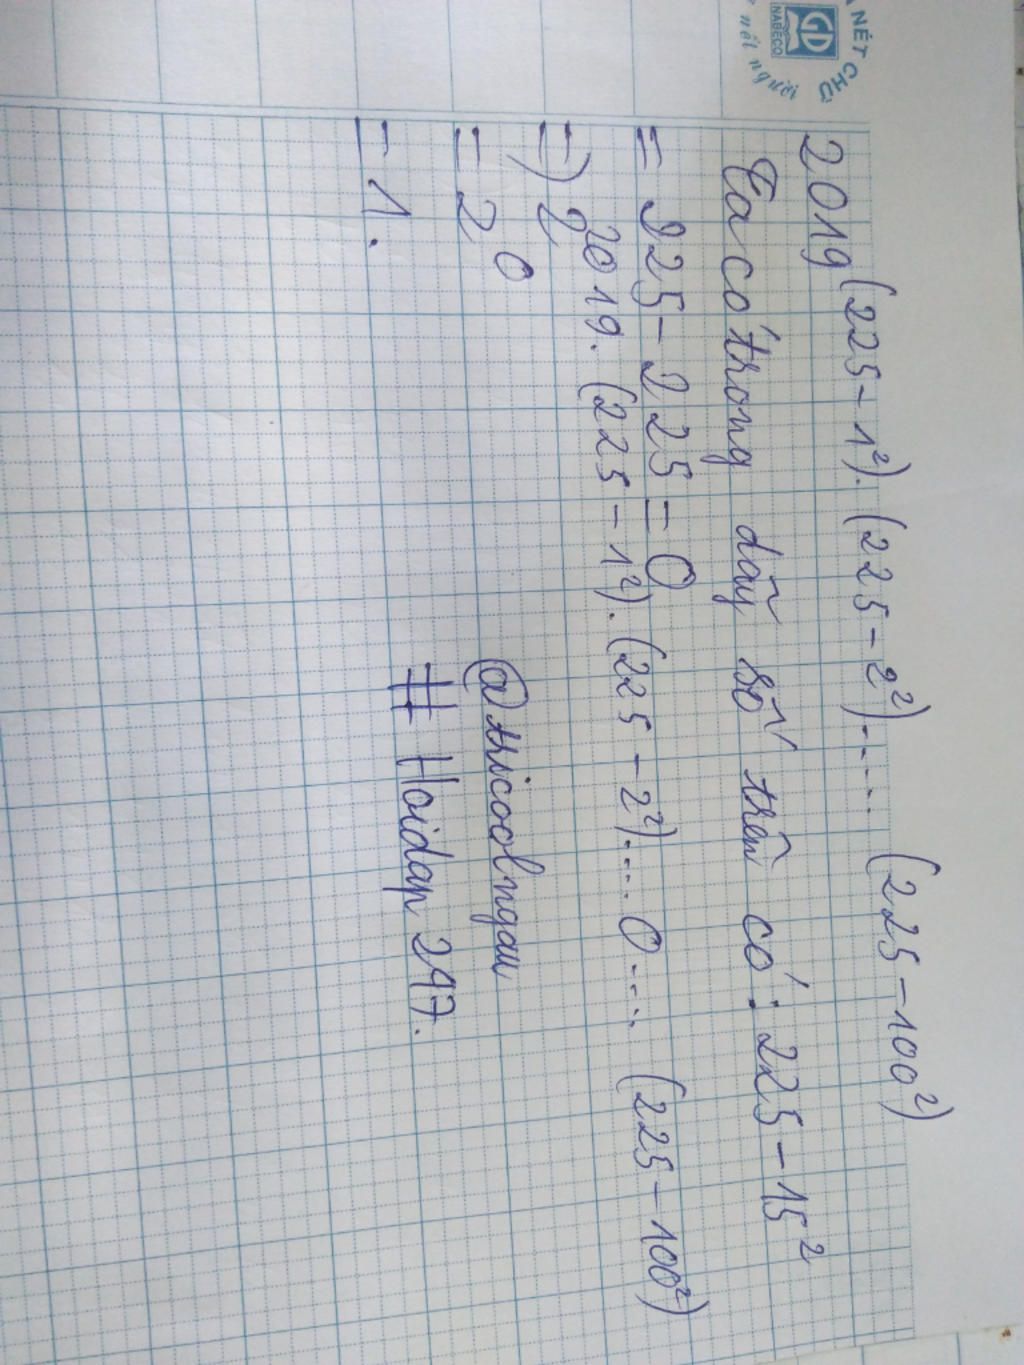 NÉT CHỮ
nết người
GD
NABECO
2019^(225-1²).(225-2²).....(225-100²)
Ta có trong dãy số trên có: 225-15²
= 225-225=0
=) 2^2019.(225-1²).(225-2²)....0....(225-100²)
= 2^0
= 1.
@thicoolngau
# Hoidap247.